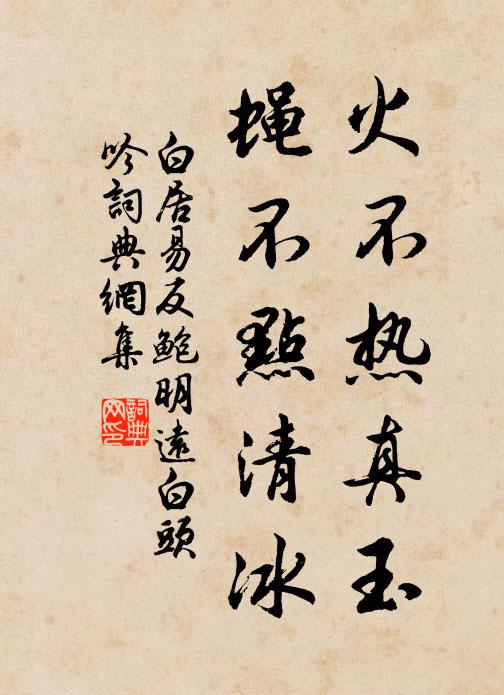 火不热真玉
蝇不點清冰
白居易反鲍明遠白頭
吟詞典網集
詞典
网印